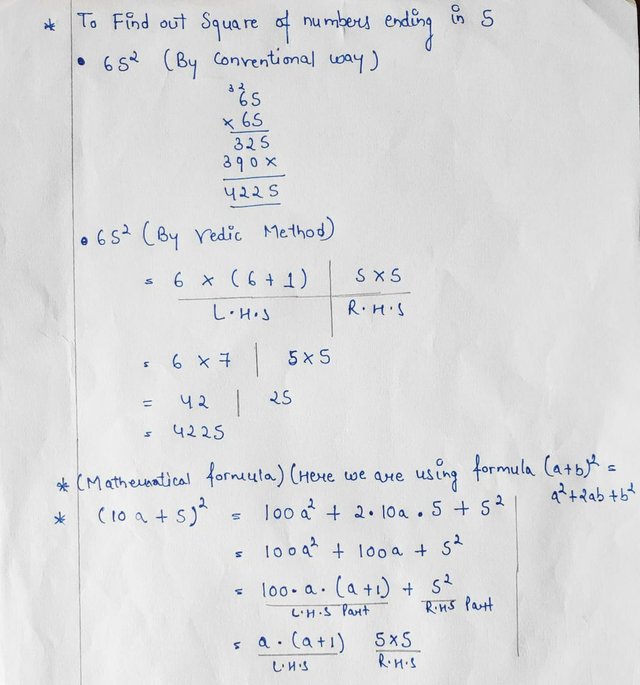 * To Find out Square of numbers ending in 5
• 65² (By Conventional way)
32
65
x 65
325
390x
4225
• 65² (By Vedic Method)
= 6 x (6+1) | 5x5
L.H.S | R.H.S
= 6 x 7 | 5x5
= 42 | 25
= 4225
* (Mathematical formula) (Here we are using formula (a+b)² =
a²+2ab+b²
* (10a+5)² = 100a² + 2.10a.5 + 5²
= 100a² + 100a + 5²
= 100.a.(a+1) + 5²
L.H.S Part R.H.S Part
= a.(a+1) 5x5
L.H.S R.H.S